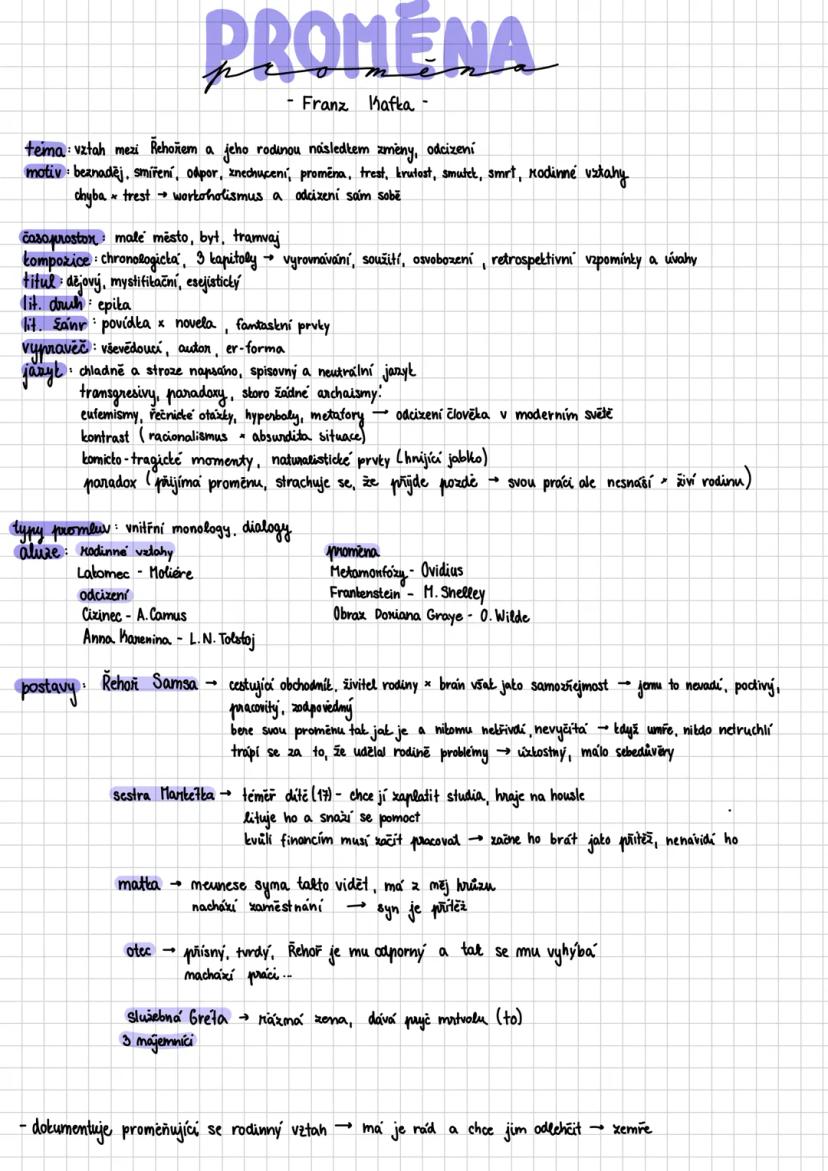 PROMĚNA
proměna
- Franz Kafka -
téma: vztah mezi Řehořem a jeho rodinou následkem změny, odcizení
motiv: beznaděj, smíření, odpor, znechucení, proměna, trest, krutost, smutek, smrt, rodinné vztahy
chyba × trest → workoholismus a odcizení sám sobě
časoprostor: malé město, byt, tramvaj
kompozice: chronologická, 3 kapitoly → vyrovnávání, soužití, osvobození, retrospektivní vzpomínky a úvahy
titul: dějový, mystifikační, esejistický
lit. druh: epika
lit. žánr: povídka × novela, fantaskní prvky
vypravěč: vševědoucí, autor, er-forma
jazyk: chladně a stroze napsáno, spisovný a neutrální jazyk
transgresivy, paradoxy, skoro žádné archaismy!
eufemismy, řečnické otázky, hyperboly, metafory → odcizení člověka v moderním světě
kontrast (racionalismus × absurdita situace)
komicko-tragické momenty, naturalistické prvky (hnijící jablko)
paradox (přijímá proměnu, strachuje se, že přijde pozdě → svou práci ale nesnáší × živí rodinu)
typy promluv: vnitřní monology, dialogy
aluze: rodinné vztahy
Lakomec - Moliére
odcizení
Cizinec - A. Camus
Anna Karenina - L.N. Tolstoj
proměna
Metamorfózy - Ovidius
Frankenstein - M. Shelley
Obraz Doriana Graye - O. Wilde
postavy: Řehoř Samsa → cestující obchodník, živitel rodiny × brán však jako samozřejmost → jemu to nevadí, poctivý,
pracovitý, zodpovědný
bere svou proměnu tak jak je a nikomu nekřivdí, nevyčítá → když umře, nikdo netruchlí
trápí se za to, že udělal rodině problémy → úzkostný, málo sebedůvěry
sestra Markétka → téměř dítě (17) - chce jí zaplatit studia, hraje na housle
lituje ho a snaží se pomoct
kvůli financím musí začít pracovat → začne ho brát jako přítěž, nenávidí ho
matka → neunese syna takto vidět, má z něj hrůzu
nachází zaměstnání → syn je přítěž
otec → přísný, tvrdý, Řehoř je mu odporný a tak se mu vyhýbá
nachází práci...
služebná Gréta → rázná žena, dává pryč mrtvolu (to)
3 nájemníci
- dokumentuje proměňující se rodinný vztah → má je rád a chce jim odlehčit → zemře